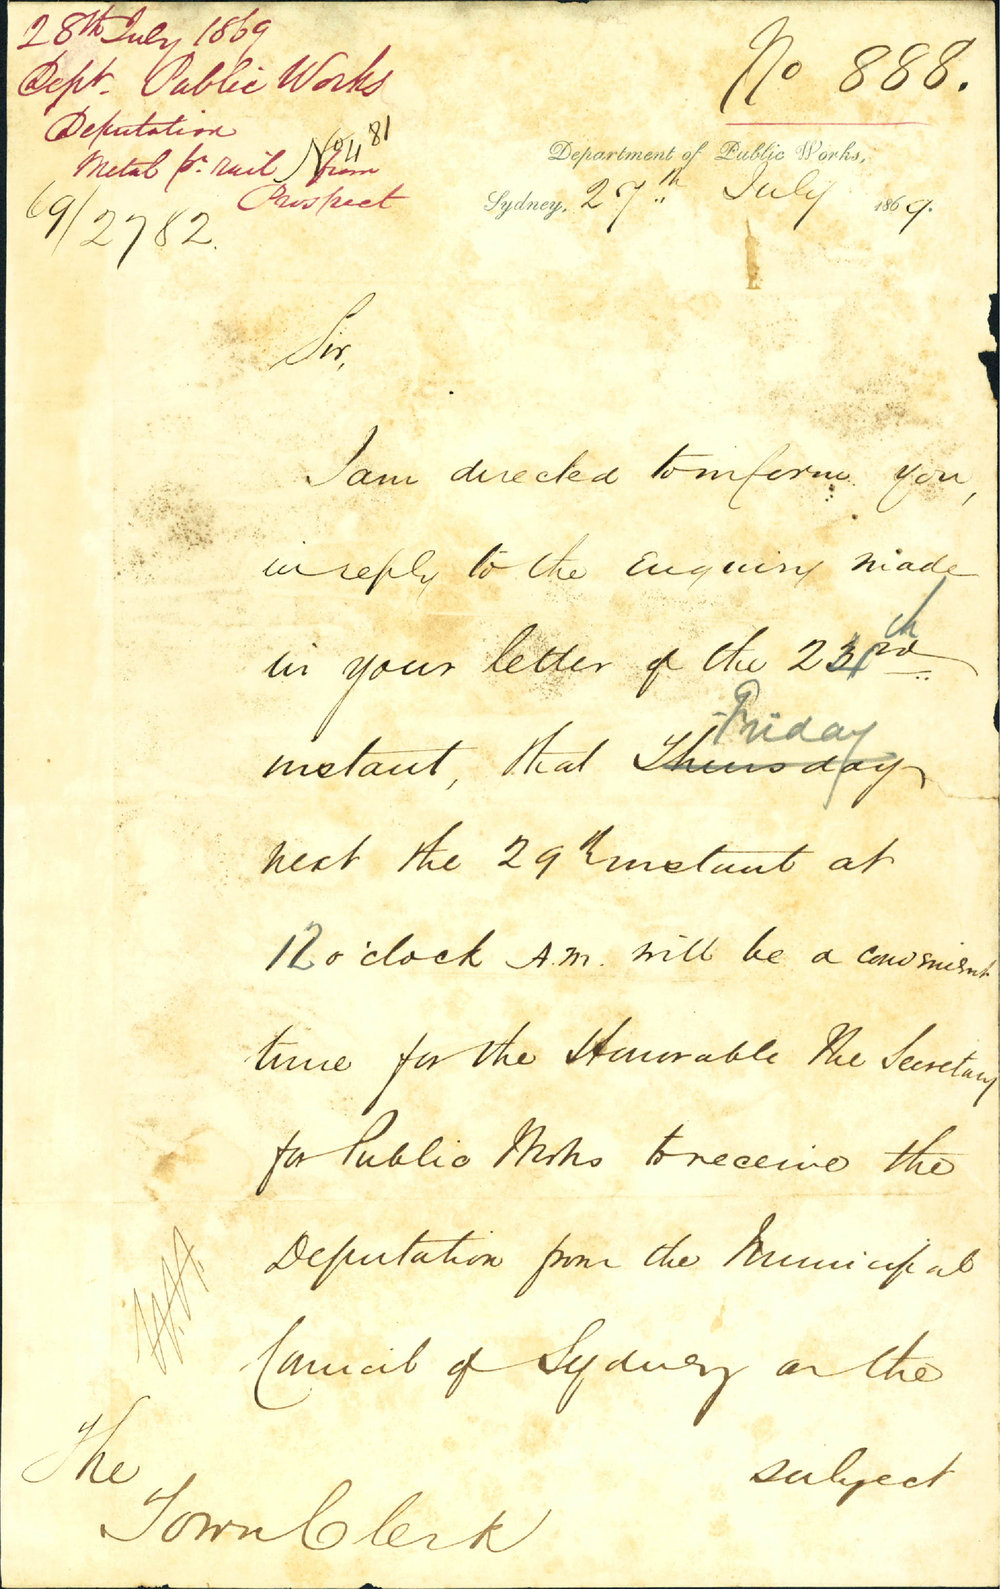 28th July 1869
Dept. Public Works
Deputation
Metal pr. rail from
Prospect
No 481
69/2782.
No 888.
Department of Public Works,
Sydney, 27th July 1869.
Sir,
I am directed to inform you,
in reply to the enquiry made
in your letter of the 23rd
instant, that Thursday
Friday
next the 29th instant at
12 o'clock A.M. will be a convenient
time for the Honorable The Secretary
for Public Works to receive the
Deputation from the Municipal
Council of Sydney on the
subject
The
Town Clerk